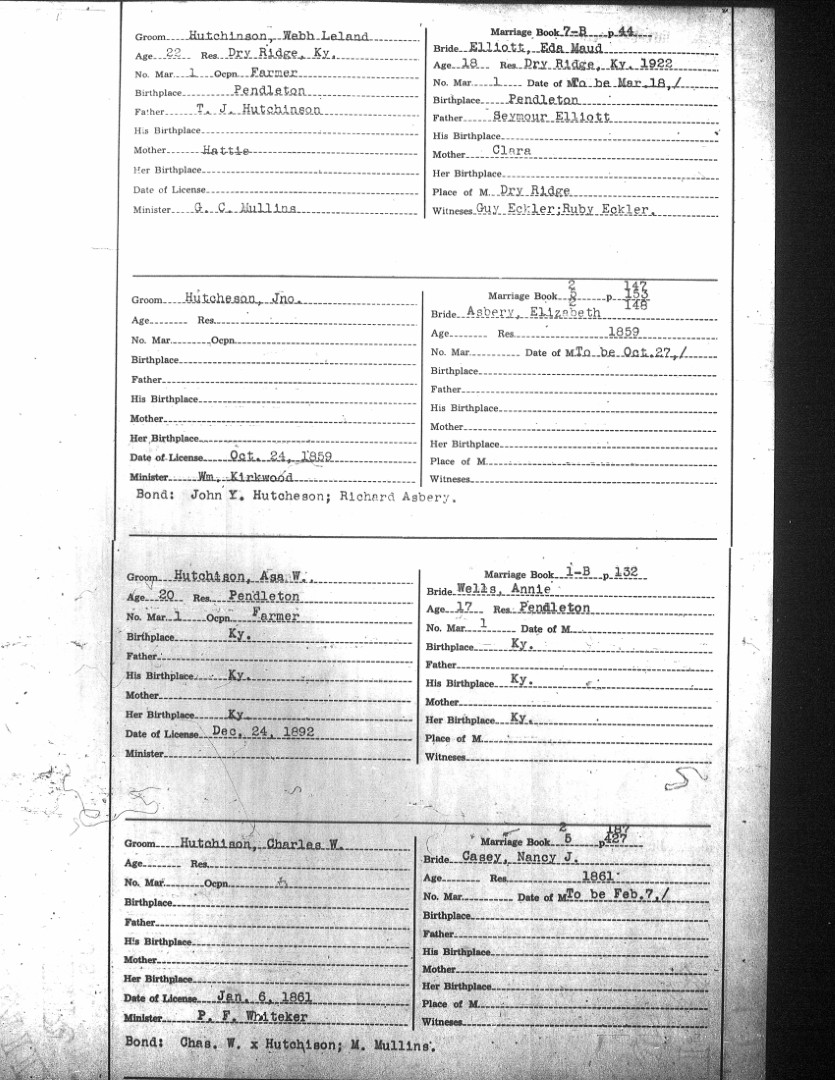 Groom Hutchinson, Webb Leland
Age 22 Res. Dry Ridge, Ky.
No. Mar. 1 Ocpn. Farmer
Birthplace Pendleton
Father T. J. Hutchinson
His Birthplace
Mother Hattie
Her Birthplace
Date of License
Minister G. C. Mullins
Marriage Book 7-B p. 44
Bride Elliott, Eda Maud
Age 18 Res. Dry Ridge, Ky. 1922
No. Mar. 1 Date of M. To be Mar.18,/
Birthplace Pendleton
Father Seymour Elliott
His Birthplace
Mother Clara
Her Birthplace
Place of M. Dry Ridge
Witneses Guy Eckler;Ruby Eckler.
Groom Hutcheson, Jno.
Age Res.
No. Mar. Ocpn.
Birthplace
Father
His Birthplace
Mother
Her Birthplace
Date of License Oct. 24, 1859
Minister Wm. Kirkwood
2 147
Marriage Book 5 p. 153
2 148
Bride Asbery, Elizabeth
Age Res. 1859
No. Mar. Date of M. To be Oct.27,/
Birthplace
Father
His Birthplace
Mother
Her Birthplace
Place of M.
Witneses
Bond: John Y. Hutcheson; Richard Asbery.
Groom Hutchison, Asa W.
Age 20 Res. Pendleton
No. Mar. 1 Ocpn. Farmer
Birthplace Ky.
Father
His Birthplace Ky.
Mother
Her Birthplace Ky.
Date of License Dec. 24, 1892
Minister
Marriage Book 1-B p. 132
Bride Wells, Annie
Age 17 Res. Pendleton
No. Mar. 1 Date of M.
Birthplace Ky.
Father
His Birthplace Ky.
Mother
Her Birthplace Ky.
Place of M.
Witneses
Groom Hutchison, Charles W.
Age Res.
No. Mar. Ocpn.
Birthplace
Father
His Birthplace
Mother
Her Birthplace
Date of License Jan. 6, 1861
Minister P. F. Whiteker
2 187
Marriage Book 5 p. 427
Bride Casey, Nancy J.
Age Res. 1861
No. Mar. Date of M. To be Feb.7,/
Birthplace
Father
His Birthplace
Mother
Her Birthplace
Place of M.
Witneses
Bond: Chas. W. x Hutchison; M. Mullins.